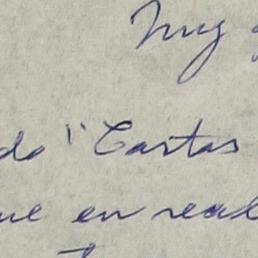 Muy
do "Cartas
ue en real